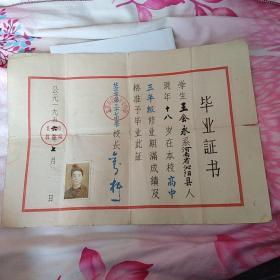 毕业证书
学生王金永系河南省沁阳县人
现年十八岁在本校高中
三年级修业期满成绩及
格准予毕业此证
校长
公元一九五六年七月 日